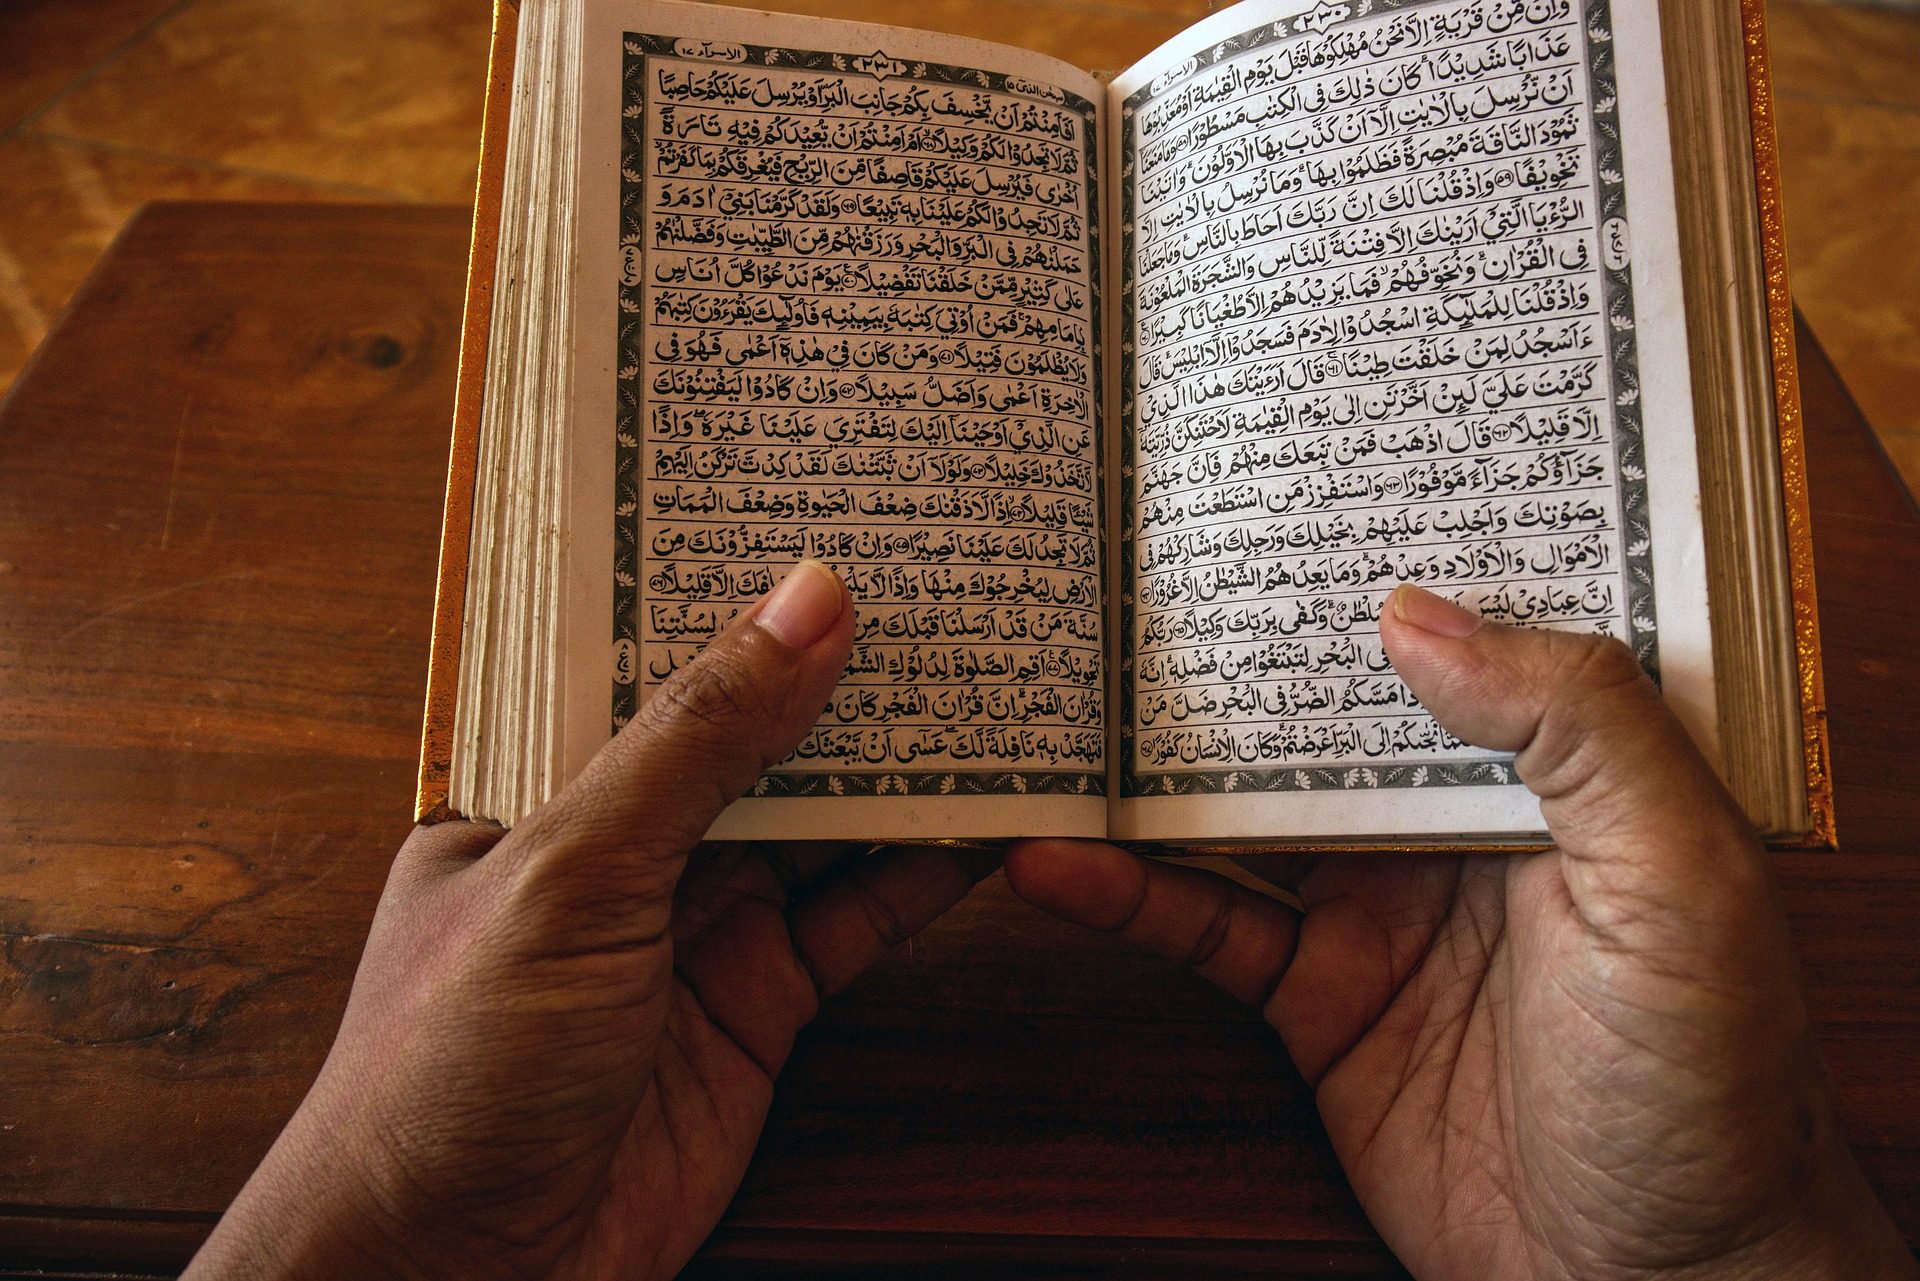 الاسرآء ١٧
٢٣٠
وَاِنْ مِّنْ قَرْيَةٍ اِلَّا نَحْنُ مُهْلِكُوْهَا قَبْلَ يَوْمِ الْقِيٰمَةِ اَوْ مُعَذِّبُوْهَا
عَذَابًا شَدِيْدًاۗ كَانَ ذٰلِكَ فِى الْكِتٰبِ مَسْطُوْرًا ٥٨ وَمَا مَنَعَنَآ
اَنْ نُّرْسِلَ بِالْاٰيٰتِ اِلَّآ اَنْ كَذَّبَ بِهَا الْاَوَّلُوْنَۗ وَاٰتَيْنَا
ثَمُوْدَ النَّاقَةَ مُبْصِرَةً فَظَلَمُوْا بِهَاۗ وَمَا نُرْسِلُ بِالْاٰيٰتِ اِلَّا
تَخْوِيْفًا ٥٩ وَاِذْ قُلْنَا لَكَ اِنَّ رَبَّكَ اَحَاطَ بِالنَّاسِۗ وَمَا جَعَلْنَا
الرُّءْيَا الَّتِيْٓ اَرَيْنٰكَ اِلَّا فِتْنَةً لِّلنَّاسِ وَالشَّجَرَةَ الْمَلْعُوْنَةَ
فِى الْقُرْاٰنِۗ وَنُخَوِّفُهُمْۙ فَمَا يَزِيْدُهُمْ اِلَّا طُغْيَانًا كَبِيْرًا ٦٠
وَاِذْ قُلْنَا لِلْمَلٰۤىِٕكَةِ اسْجُدُوْا لِاٰدَمَ فَسَجَدُوْٓا اِلَّآ اِبْلِيْسَۗ قَالَ
ءَاَسْجُدُ لِمَنْ خَلَقْتَ طِيْنًاۚ ٦١ قَالَ اَرَءَيْتَكَ هٰذَا الَّذِيْ
كَرَّمْتَ عَلَيَّ لَىِٕنْ اَخَّرْتَنِ اِلٰى يَوْمِ الْقِيٰمَةِ لَاَحْتَنِكَنَّ ذُرِّيَّتَهٗٓ
اِلَّا قَلِيْلًا ٦٢ قَالَ اذْهَبْ فَمَنْ تَبِعَكَ مِنْهُمْ فَاِنَّ جَهَنَّمَ
جَزَاۤؤُكُمْ جَزَاۤءً مَّوْفُوْرًا ٦٣ وَاسْتَفْزِزْ مَنِ اسْتَطَعْتَ مِنْهُمْ
بِصَوْتِكَ وَاَجْلِبْ عَلَيْهِمْ بِخَيْلِكَ وَرَجِلِكَ وَشَارِكْهُمْ فِى
الْاَمْوَالِ وَالْاَوْلَادِ وَعِدْهُمْۗ وَمَا يَعِدُهُمُ الشَّيْطٰنُ اِلَّا غُرُوْرًا ٦٤
اِنَّ عِبَادِيْ لَيْسَ سُلْطٰنٌۗ وَكَفٰى بِرَبِّكَ وَكِيْلًا ٦٥ رَبُّكُمُ
الْبَحْرِ لِتَبْتَغُوْا مِنْ فَضْلِهٖۗ اِنَّهٗ
مَسَّكُمُ الضُّرُّ فِى الْبَحْرِ ضَلَّ مَنْ
نَجّٰىكُمْ اِلَى الْبَرِّ اَعْرَضْتُمْۗ وَكَانَ الْاِنْسَانُ كَفُوْرًا ٦٧
سبحن الذي ١٥
٢٣١
الاسرآء ١٧
اَفَاَمِنْتُمْ اَنْ يَّخْسِفَ بِكُمْ جَانِبَ الْبَرِّ اَوْ يُرْسِلَ عَلَيْكُمْ حَاصِبًا
ثُمَّ لَا تَجِدُوْا لَكُمْ وَكِيْلًاۙ ٦٨ اَمْ اَمِنْتُمْ اَنْ يُّعِيْدَكُمْ فِيْهِ تَارَةً
اُخْرٰى فَيُرْسِلَ عَلَيْكُمْ قَاصِفًا مِّنَ الرِّيْحِ فَيُغْرِقَكُمْ بِمَا كَفَرْتُمْۙ
ثُمَّ لَا تَجِدُوْا لَكُمْ عَلَيْنَا بِهٖ تَبِيْعًا ٦٩ وَلَقَدْ كَرَّمْنَا بَنِيْٓ اٰدَمَ وَ
حَمَلْنٰهُمْ فِى الْبَرِّ وَالْبَحْرِ وَرَزَقْنٰهُمْ مِّنَ الطَّيِّبٰتِ وَفَضَّلْنٰهُمْ
عَلٰى كَثِيْرٍ مِّمَّنْ خَلَقْنَا تَفْضِيْلًا ٧٠ يَوْمَ نَدْعُوْا كُلَّ اُنَاسٍ
بِاِمَامِهِمْۚ فَمَنْ اُوْتِيَ كِتٰبَهٗ بِيَمِيْنِهٖ فَاُولٰۤىِٕكَ يَقْرَءُوْنَ كِتٰبَهُمْ
وَلَا يُظْلَمُوْنَ فَتِيْلًا ٧١ وَمَنْ كَانَ فِيْ هٰذِهٖٓ اَعْمٰى فَهُوَ فِى
الْاٰخِرَةِ اَعْمٰى وَاَضَلُّ سَبِيْلًا ٧٢ وَاِنْ كَادُوْا لَيَفْتِنُوْنَكَ
عَنِ الَّذِيْٓ اَوْحَيْنَآ اِلَيْكَ لِتَفْتَرِيَ عَلَيْنَا غَيْرَهٗۖ وَاِذًا
لَّاتَّخَذُوْكَ خَلِيْلًا ٧٣ وَلَوْلَآ اَنْ ثَبَّتْنٰكَ لَقَدْ كِدْتَّ تَرْكَنُ اِلَيْهِمْ
شَيْـًٔا قَلِيْلًاۙ ٧٤ اِذًا لَّاَذَقْنٰكَ ضِعْفَ الْحَيٰوةِ وَضِعْفَ الْمَمَاتِ
ثُمَّ لَا تَجِدُ لَكَ عَلَيْنَا نَصِيْرًا ٧٥ وَاِنْ كَادُوْا لَيَسْتَفِزُّوْنَكَ مِنَ
الْاَرْضِ لِيُخْرِجُوْكَ مِنْهَا وَاِذًا لَّا خِلٰفَكَ اِلَّا قَلِيْلًا ٧٦
سُنَّةَ مَنْ قَدْ اَرْسَلْنَا قَبْلَكَ مِنْ لِسُنَّتِنَا
تَحْوِيْلًا ٧٧ اَقِمِ الصَّلٰوةَ لِدُلُوْكِ
وَقُرْاٰنَ الْفَجْرِۗ اِنَّ قُرْاٰنَ الْفَجْرِ كَانَ
فَتَهَجَّدْ بِهٖ نَافِلَةً لَّكَۖ عَسٰٓى اَنْ يَّبْعَثَكَ